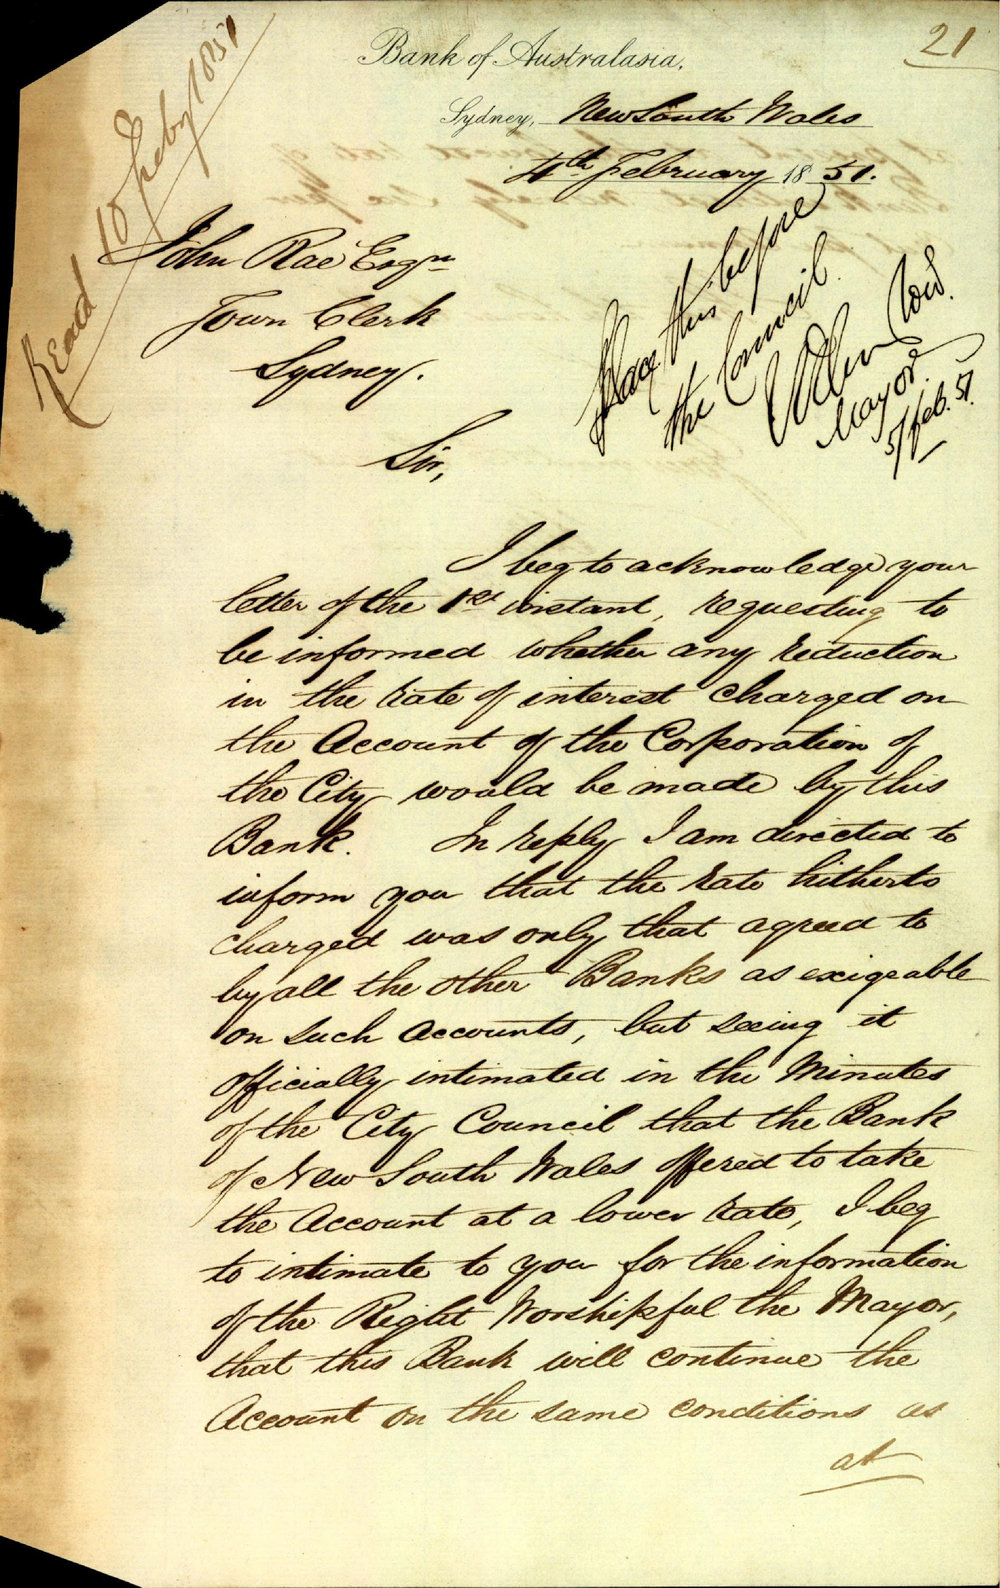 21
Bank of Australasia,
Sydney, New South Wales
4th February 1851.
Read 10 Feby 1851
John Rae Esqre
Town Clerk
Sydney.
Place this before
the Council.
Mayor
5/Feb. 51.
Sir,
I beg to acknowledge your
letter of the 1st instant, requesting to
be informed whether any reduction
in the rate of interest charged on
the Account of the Corporation of
the City would be made by this
Bank. In reply I am directed to
inform you that the rate hitherto
charged was only that agreed to
by all the other Banks as exigeable
on such accounts, but seeing it
officially intimated in the Minutes
of the City Council that the Bank
of New South Wales offered to take
the Account at a lower rate, I beg
to intimate to you for the information
of the Right Worshipful the Mayor,
that this Bank will continue the
Account on the same conditions as
at